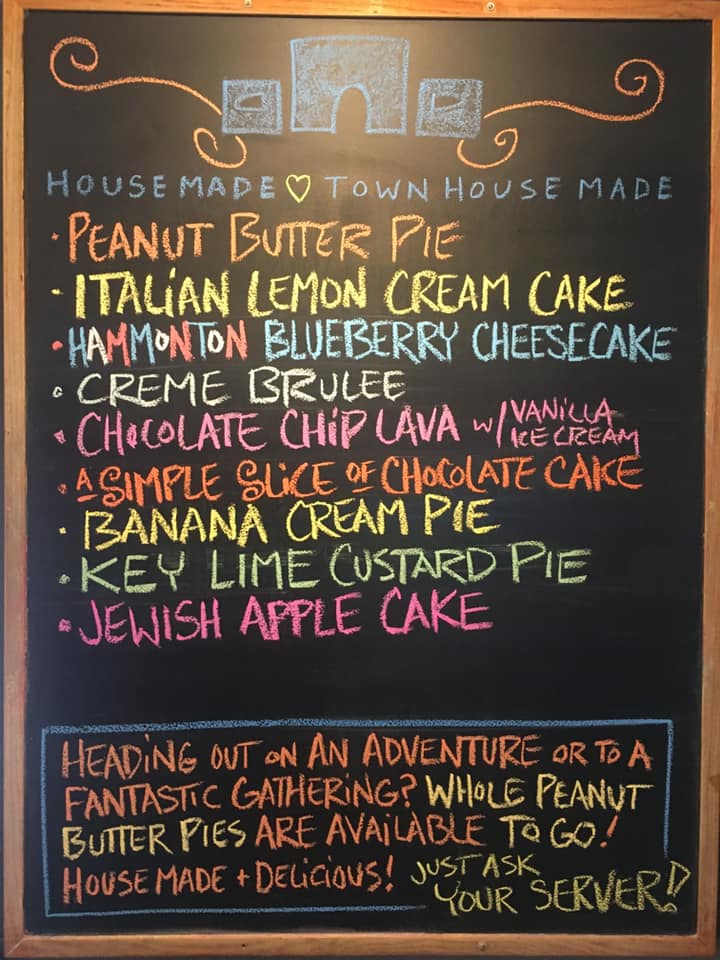 HOUSE MADE ♡ TOWN HOUSE MADE
• PEANUT BUTTER PIE
• ITALIAN LEMON CREAM CAKE
• HAMMONTON BLUEBERRY CHEESECAKE
• CREME BRULEE
• CHOCOLATE CHIP LAVA w/ VANILLA
ICE CREAM
• A SIMPLE SLICE OF CHOCOLATE CAKE
• BANANA CREAM PIE
• KEY LIME CUSTARD PIE
• JEWISH APPLE CAKE
HEADING OUT ON AN ADVENTURE OR TO A
FANTASTIC GATHERING? WHOLE PEANUT
BUTTER PIES ARE AVAILABLE TO GO!
HOUSE MADE + DELICIOUS! JUST ASK
YOUR SERVER!